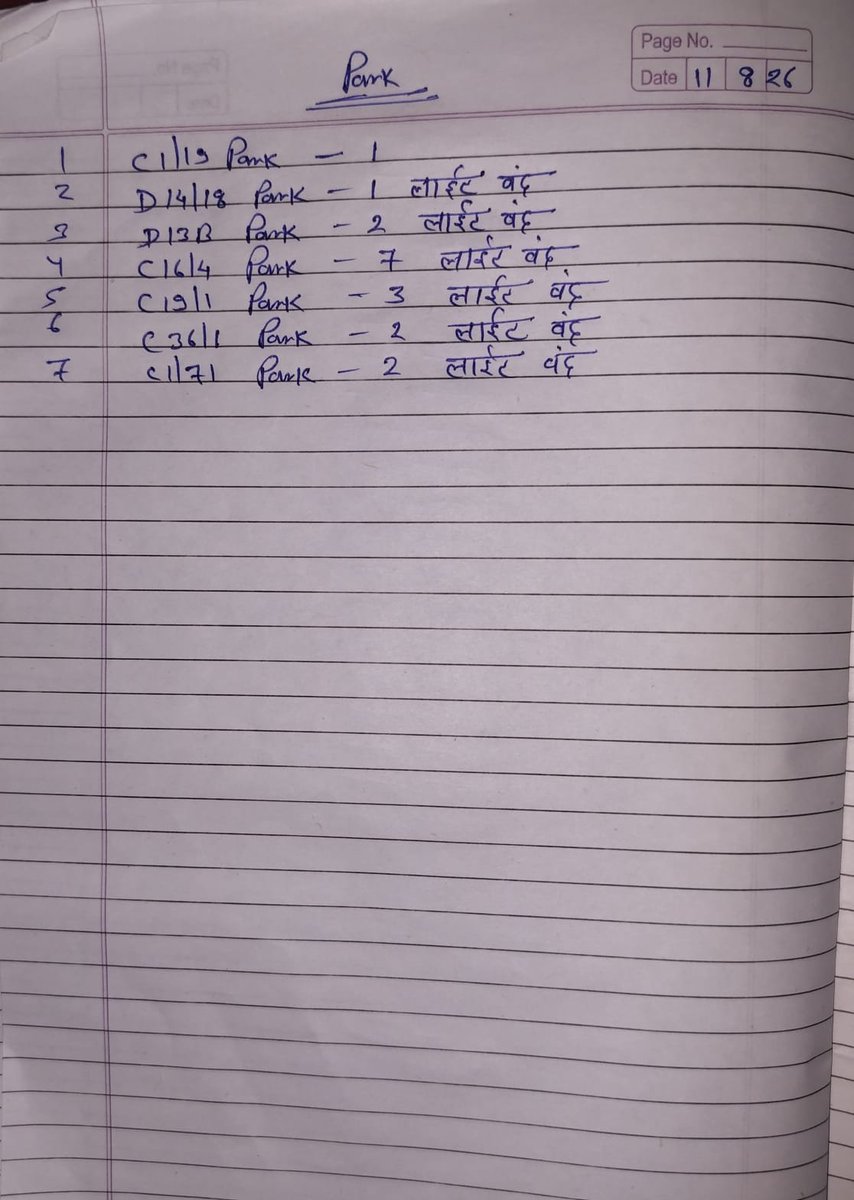 Page No.
Date 11 8 26
Park
1 C1/19 Park - 1
2 D14/18 Park - 1 लाईट बंद
3 D13B Park - 2 लाईट बंद
4 C16/4 Park - 7 लाईट बंद
5 C19/1 Park - 3 लाईट बंद
6 C36/1 Park - 2 लाईट बंद
7 C1/71 Park - 2 लाईट बंद